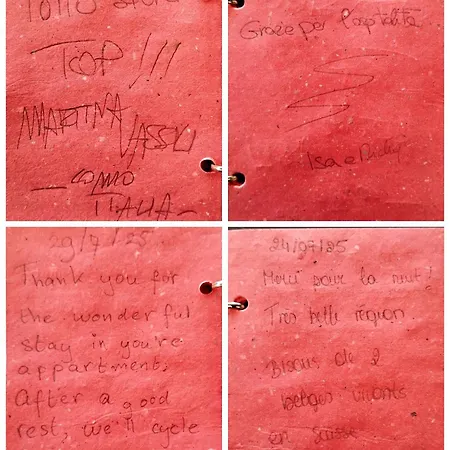 TOP!!!
MARTINA
COMO
ITALIA
Grazie per l'ospitalità
Isa e
29/7/25
Thank you for
the wonderful
stay in you're
appartment.
After a good
rest, we'll cycle
24/07/25
Merci pour la nuit!
Très belle région.
Bisous de 2
belges vivants
en Suisse